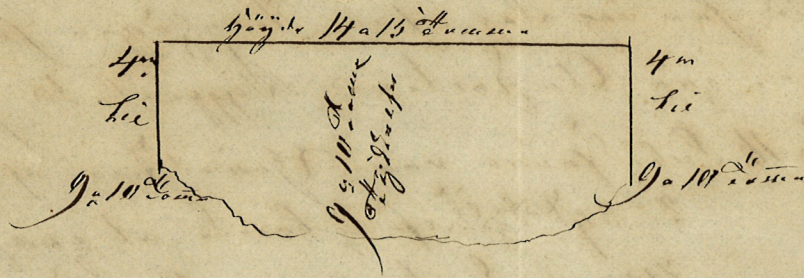 Höyde 14 a 15 Tomme
4 m
Lie
4 m
Lie
9 a 10 Tomme
9 a 10 Tomme
9 a 10 Tomme